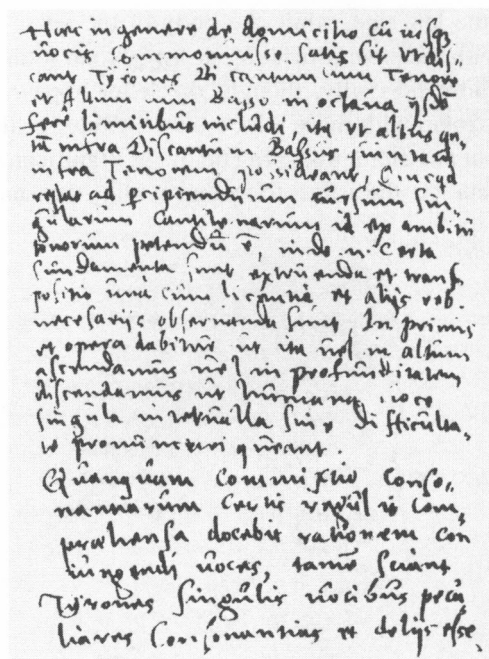 Haec in genere de domicilio cuiusq
vocis commonuisse satis sit ut dis-
cant Tyrones Discantum cum Tenore
et Altum cum Basso in octava ijsdē
fere limitibus includi, ita ut altus
infra Discantum Bassus
infra Tenorem possideant, Quicqd
restat ad percipiendum cursum sin-
gularum Cantilenarum id ex ambitu
tenorum petendū ē, unde certa
fundamenta sunt extruenda et trans-
positio una cum licentia et alijs reb.
necesarijs observanda sunt In primis
et opera dabitur ut ita vel in altum
ascendamus vel in profunditatem
discendamus ut humana voce
singula intervalla sine difficulta-
te queant.
Quanquam commixtio conso-
nantiarum certis regulis com-
praehensa docebit rationem con
iungendi voces, tamē sciant
Tyrones singulis vocibus pecu
liares consonantias et esse